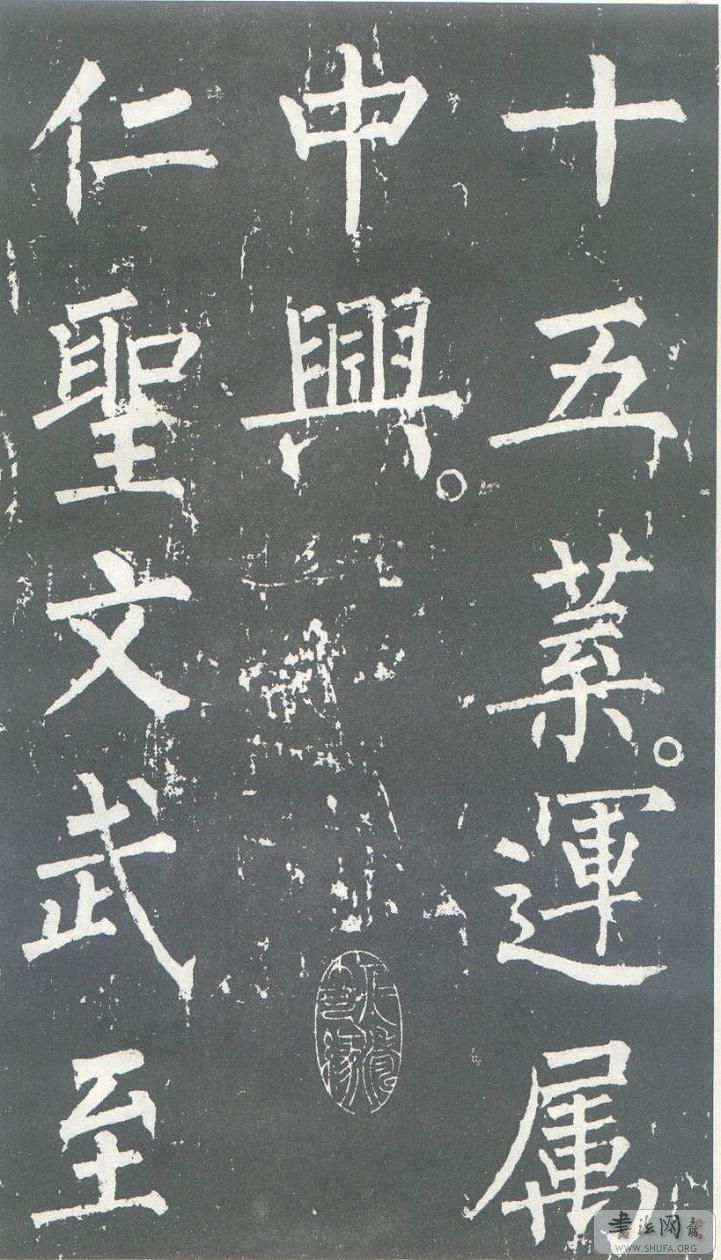 十五葉。運属
中興。
仁聖文武至
書法网
WWW.SHUFA.ORG